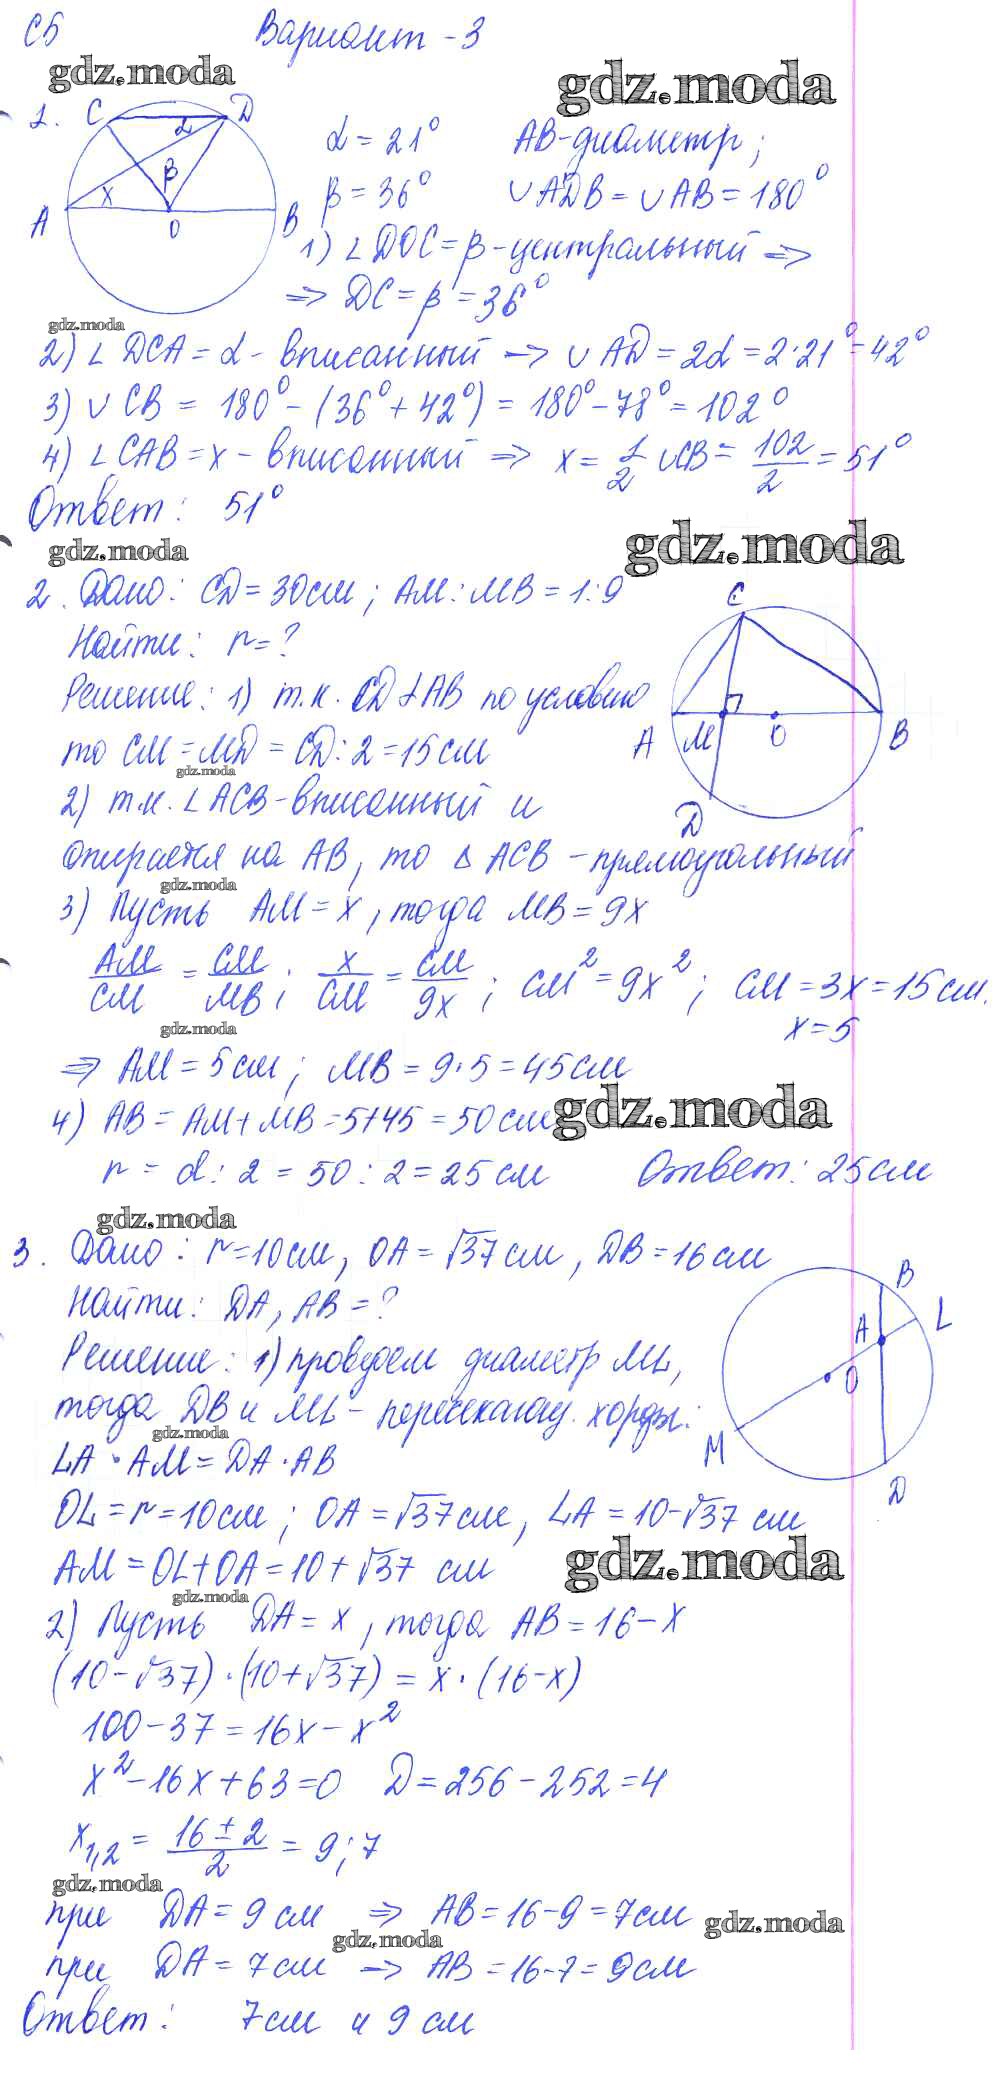 С5 Вариант - 3
gdz.moda
gdz.moda
1. C D α β x A O B
α = 21° AB - диаметр;
β = 36° ∪ADB = ∪AB = 180°
1) ∠DOC = β - центральный ⇒
⇒ DC = β = 36°
gdz.moda
2) ∠DCA = α - вписанный → ∪AD = 2α = 2·21° = 42°
3) ∪CB = 180° - (36° + 42°) = 180° - 78° = 102°
4) ∠CAB = x - вписанный ⇒ x = 1/2 ∪CB = 102/2 = 51°
Ответ: 51°
gdz.moda
gdz.moda
2. Дано: CD = 30 см; AM : MB = 1 : 9
Найти: r = ?
Решение: 1) т.к. CD ⊥ AB по условию
то CM = MD = CD : 2 = 15 см
gdz.moda
C A M O B D
2) т.к. ∠ACB - вписанный и
опирается на AB, то △ ACB - прямоугольный
gdz.moda
3) Пусть AM = x, тогда MB = 9x
AM/CM = CM/MB; x/CM = CM/9x; CM² = 9x²; CM = 3x = 15 см.
x = 5
gdz.moda
⇒ AM = 5 см; MB = 9·5 = 45 см
4) AB = AM + MB = 5 + 45 = 50 см
gdz.moda
r = d : 2 = 50 : 2 = 25 см Ответ: 25 см
gdz.moda
3. Дано: r = 10 см, OA = √37 см, DB = 16 см
Найти: DA, AB = ?
Решение: 1) проведем диаметр ML,
тогда DB и ML - пересекающ. хорды:
gdz.moda
B L A O M D
LA · AM = DA · AB
OL = r = 10 см; OA = √37 см, LA = 10 - √37 см
gdz.moda
AM = OL + OA = 10 + √37 см
gdz.moda
2) Пусть DA = x, тогда AB = 16 - x
(10 - √37) · (10 + √37) = x · (16 - x)
100 - 37 = 16x - x²
x² - 16x + 63 = 0 D = 256 - 252 = 4
x₁,₂ = 16 ± 2/2 = 9; 7
gdz.moda
при DA = 9 см ⇒ AB = 16 - 9 = 7 см
gdz.moda
gdz.moda
при DA = 7 см → AB = 16 - 7 = 9 см
Ответ: 7 см и 9 см